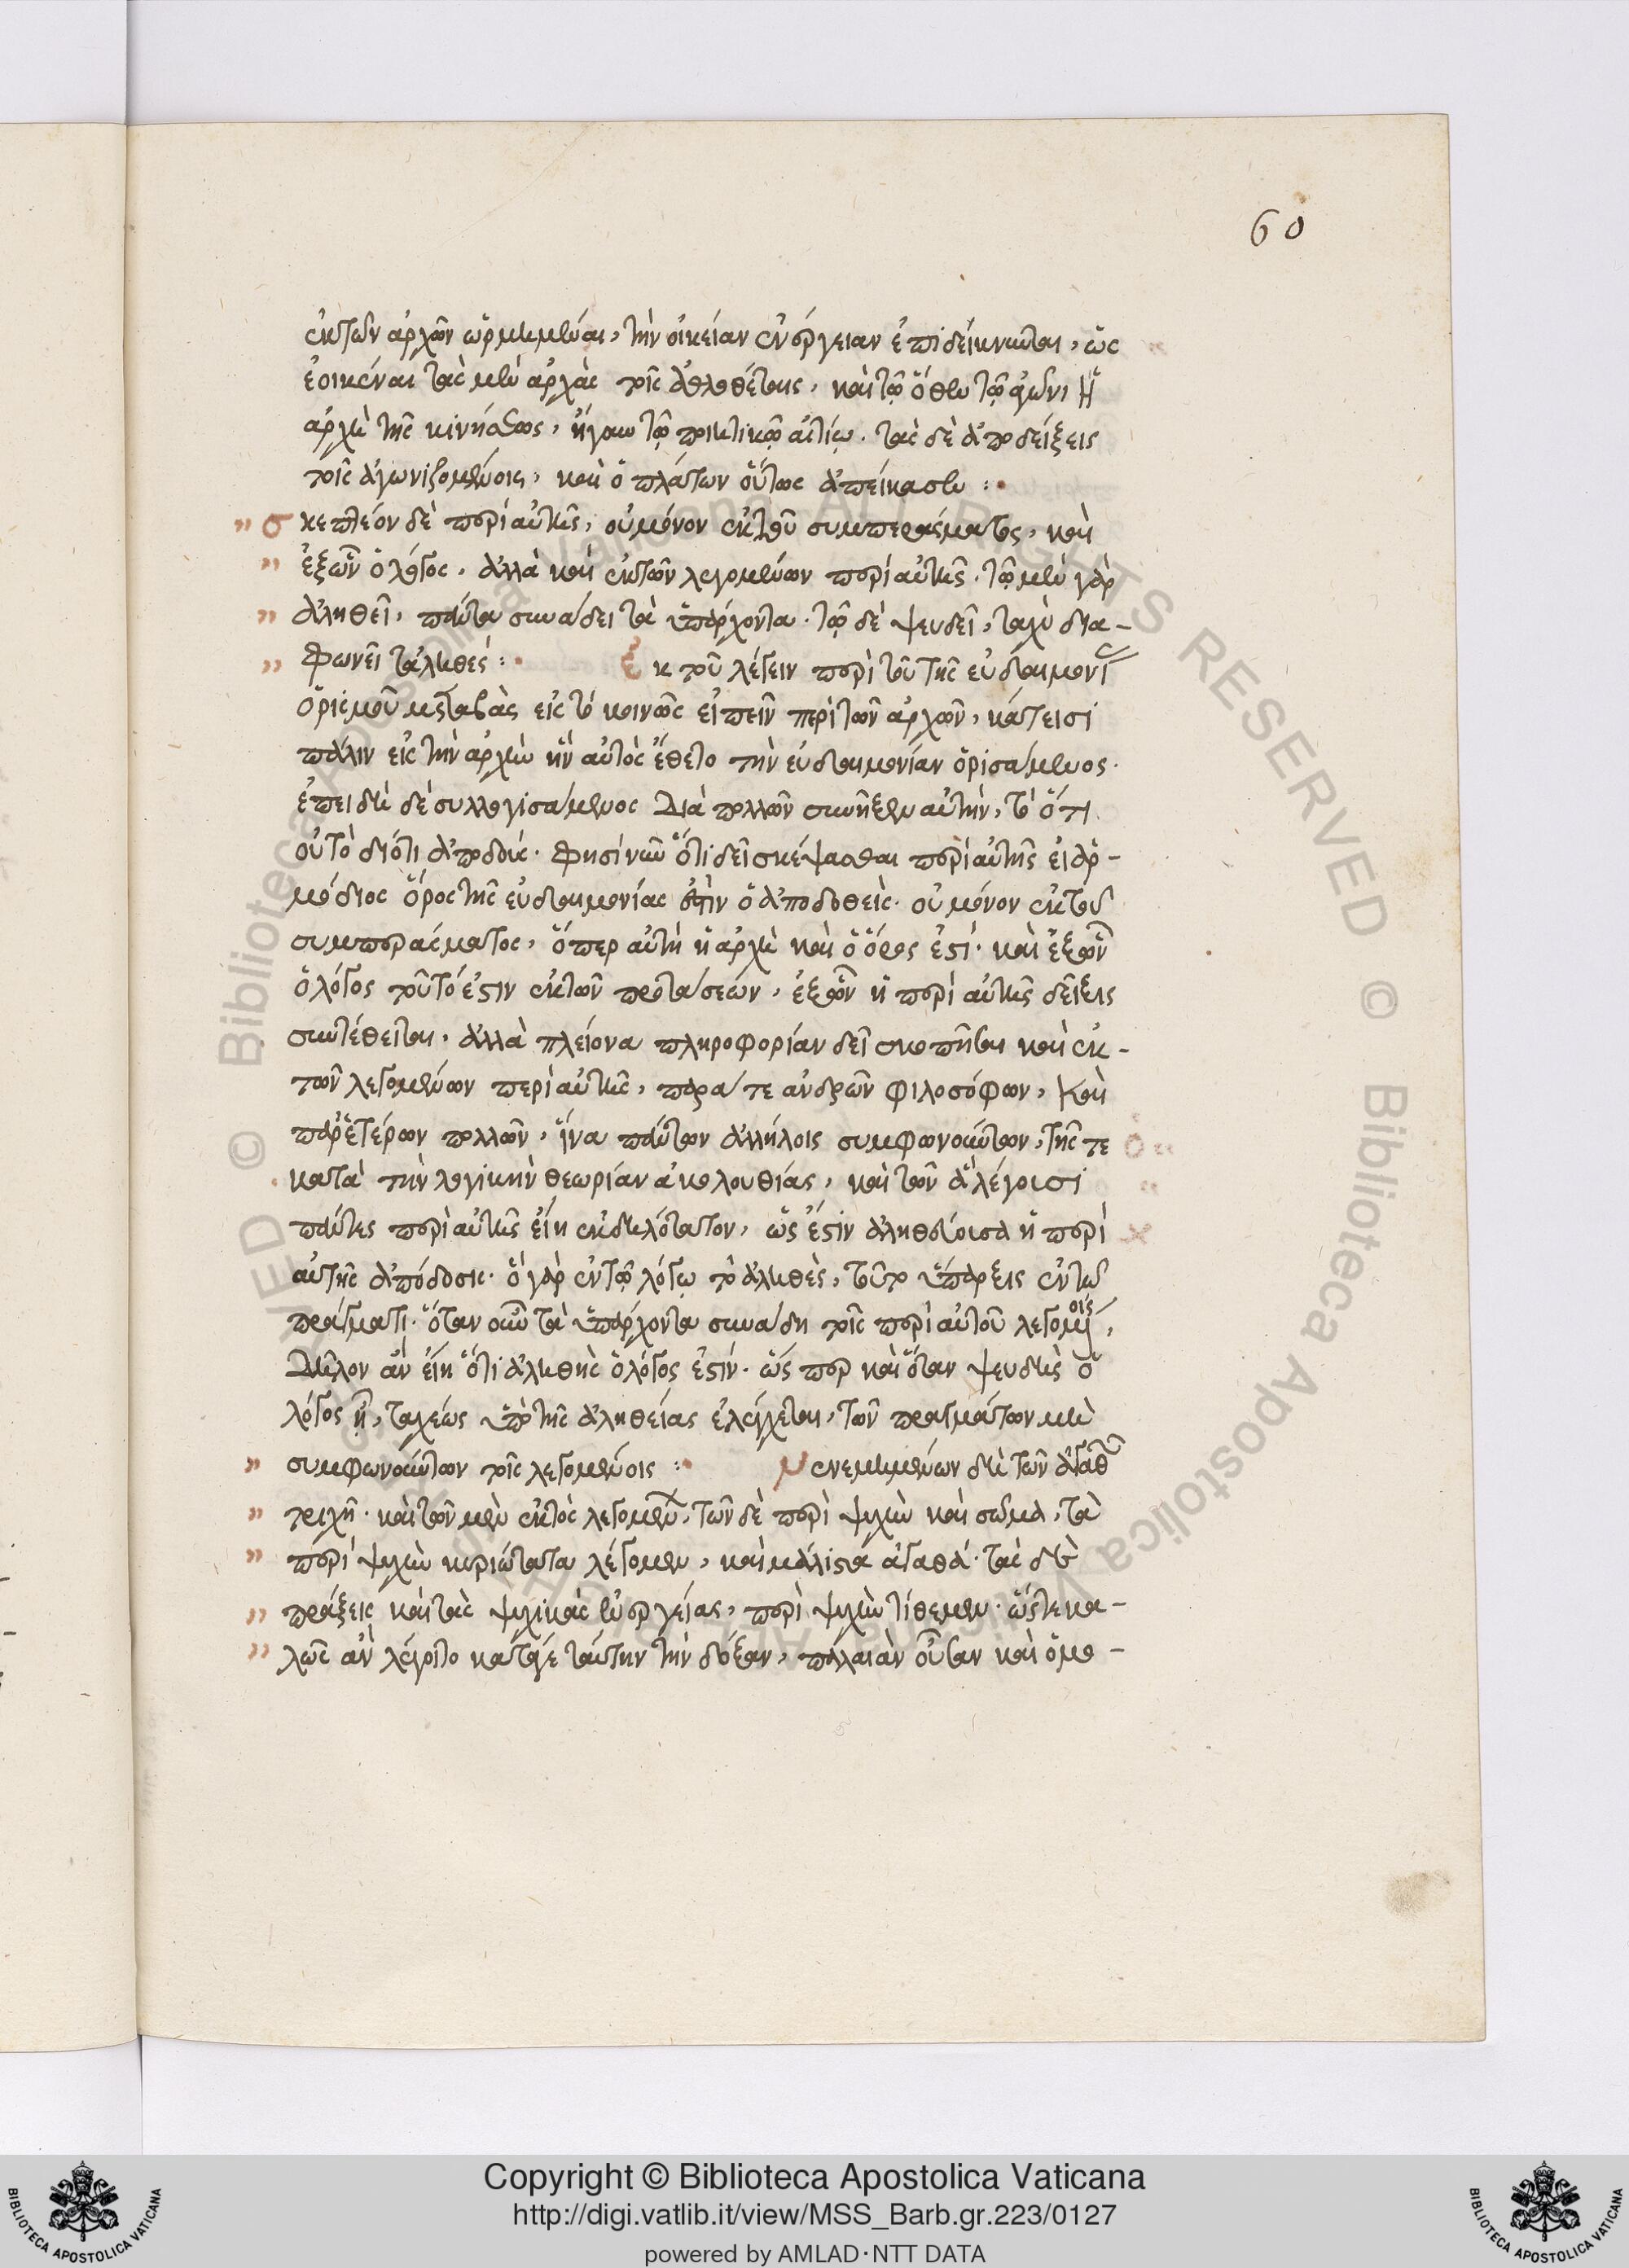 60
ἐκ τῶν ἀρχῶν ὡρμημέναι, τὴν οἰκείαν ἐνέργειαν ἐπιδείκνυνται, ὡς
ἐοικέναι τὰς μὲν ἀρχὰς τοῖς ἀθλοθέταις, καὶ τῷ ὅθεν τῷ ἀγῶνι ἡ
ἀρχὴ τῆς κινήσεως, ἤγουν τῷ ποιητικῷ αἰτίῳ. τὰς δὲ ἀποδείξεις
τοῖς ἀγωνιζομένοις, καὶ ὁ πλάτων οὕτως ἀπείκασεν :
σκεπτέον δὲ περὶ αὐτῆς, οὐ μόνον ἐκ τοῦ συμπεράσματος, καὶ
ἐξ ὧν ὁ λόγος, ἀλλὰ καὶ ἐκ τῶν λεγομένων περὶ αὐτῆς. τῷ μὲν γὰρ
ἀληθεῖ, πάντα συνάδει τὰ ὑπάρχοντα. τῷ δὲ ψευδεῖ, ταχὺ δια-
φωνεῖ τἀληθές : ἐκ τοῦ λέγειν περὶ τοῦ τῆς εὐδαιμονί
ὁρισμοῦ μεταβὰς εἰς τὸ κοινῶς εἰπεῖν περὶ τῶν ἀρχῶν, κάτεισι
πάλιν εἰς τὴν ἀρχὴν ἣν αὐτὸς ἔθετο τὴν εὐδαιμονίαν ὁρισάμενος.
ἐπειδὴ δὲ συλλογισάμενος διὰ πολλῶν συνῆξεν αὐτὴν, τὸ ὅτι
οὐ τὸ διότι ἀποδοὺς. φησὶ νῦν ὅτι δεῖ σκέψασθαι περὶ αὐτῆς εἰ ἁρ-
μόδιος ὅρος τῆς εὐδαιμονίας ἐστὶν ὁ ἀποδοθεὶς. οὐ μόνον ἐκ τοῦ
συμπεράσματος, ὅπερ αὐτὴ ἡ ἀρχὴ καὶ ὁ ὅρος ἐστί. καὶ ἐξ ὧν
ὁ λόγος τοῦτό ἐστιν ἐκ τῶν προτάσεων, ἐξ ὧν ἡ περὶ αὐτῆς δεῖξις
συντέθειται. ἀλλὰ πλείονα πληροφορίαν δεῖ σκοπῆσαι καὶ ἐκ
τῶν λεγομένων περὶ αὐτῆς, παρά τε ἀνδρῶν φιλοσόφων, καὶ
παρ' ἑτέρων πολλῶν, ἵνα πάντων ἀλλήλοις συμφωνούντων, τῆς τε
κατὰ τὴν λογικὴν θεωρίαν ἀκολουθίας, καὶ τῶν ἃ λέγουσι
πάντες περὶ αὐτῆς εἴη ἐκδηλότατον, ὡς ἔστιν ἀληθεύουσα ἡ περὶ
αὐτῆς ἀπόδοσις. ὃ γὰρ ἐν τῷ λόγῳ τὸ ἀληθὲς, τοῦτο ὕπαρξις ἐν τῷ
πράγματι. ὅταν οὖν τὰ ὑπάρχοντα συνάδη τοῖς περὶ αὐτοῦ λεγομένοις,
δῆλον ἂν εἴη ὅτι ἀληθὴς ὁ λόγος ἐστίν. ὥς περ καὶ ὅταν ψευδὴς ὁ
λόγος ᾖ, ταχέως ὑπὸ τῆς ἀληθείας ἐλέγχεται, τῶν πραγμάτων μὴ
συμφωνούντων τοῖς λεγομένοις : νενεμημένων δὴ τῶν ἀγαθῶν
τριχῆ. καὶ τῶν μὲν ἐκτὸς λεγομένων, τῶν δὲ περὶ ψυχὴν καὶ σῶμα, τὰ
περὶ ψυχὴν κυριώτατα λέγομεν, καὶ μάλιστα ἀγαθά. τὰς δὲ
πράξεις καὶ τὰς ψυχικὰς ἐνεργείας, περὶ ψυχὴν τίθεμεν. ὥστε κα-
λῶς ἂν λέγοιτο κατά γε ταύτην τὴν δόξαν, παλαιὰν οὖσαν καὶ ὁμο-
Copyright © Biblioteca Apostolica Vaticana
http://digi.vatlib.it/view/MSS_Barb.gr.223/0127
powered by AMLAD·NTT DATA